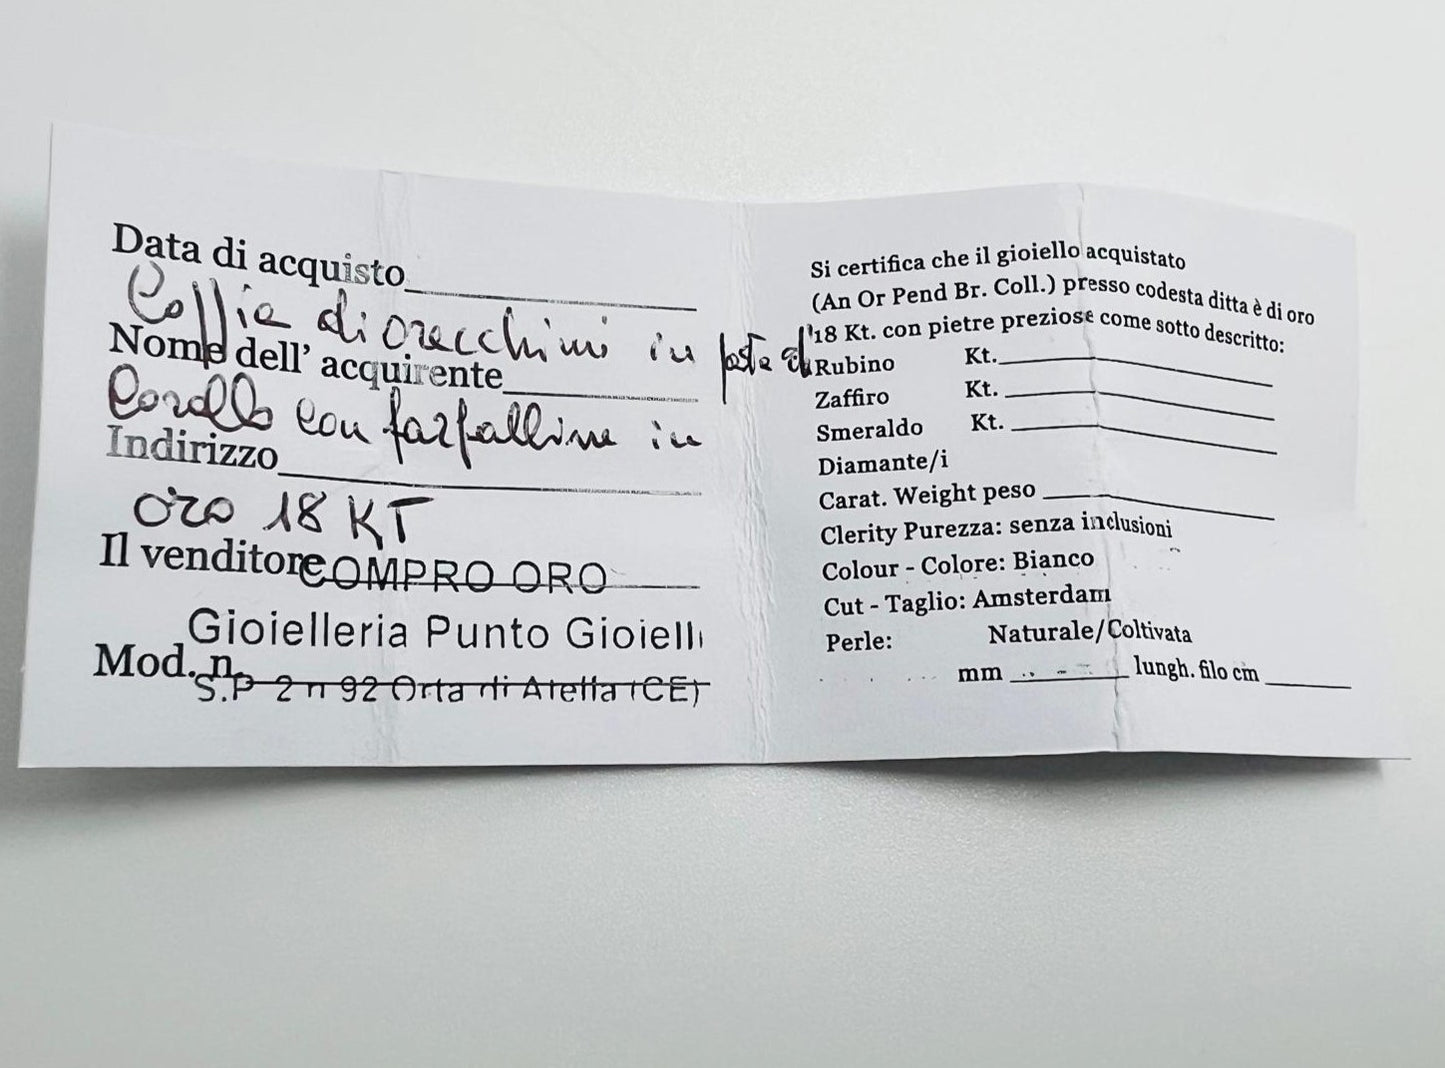 Data di acquisto
Coppia di orecchini in pasta di
Nome dell' acquirente
Corallo con farfalline in
Indirizzo
oro 18 KT
Il venditore COMPRO ORO
Gioielleria Punto Gioielli
Mod. n.
S.P 2 n 92 Orta di Atella (CE)
Si certifica che il gioiello acquistato
(An Or Pend Br. Coll.) presso codesta ditta è di oro
18 Kt. con pietre preziose come sotto descritto:
Rubino Kt.
Zaffiro Kt.
Smeraldo Kt.
Diamante/i
Carat. Weight peso
Clerity Purezza: senza inclusioni
Colour - Colore: Bianco
Cut - Taglio: Amsterdam
Perle: Naturale/Coltivata
mm lungh. filo cm